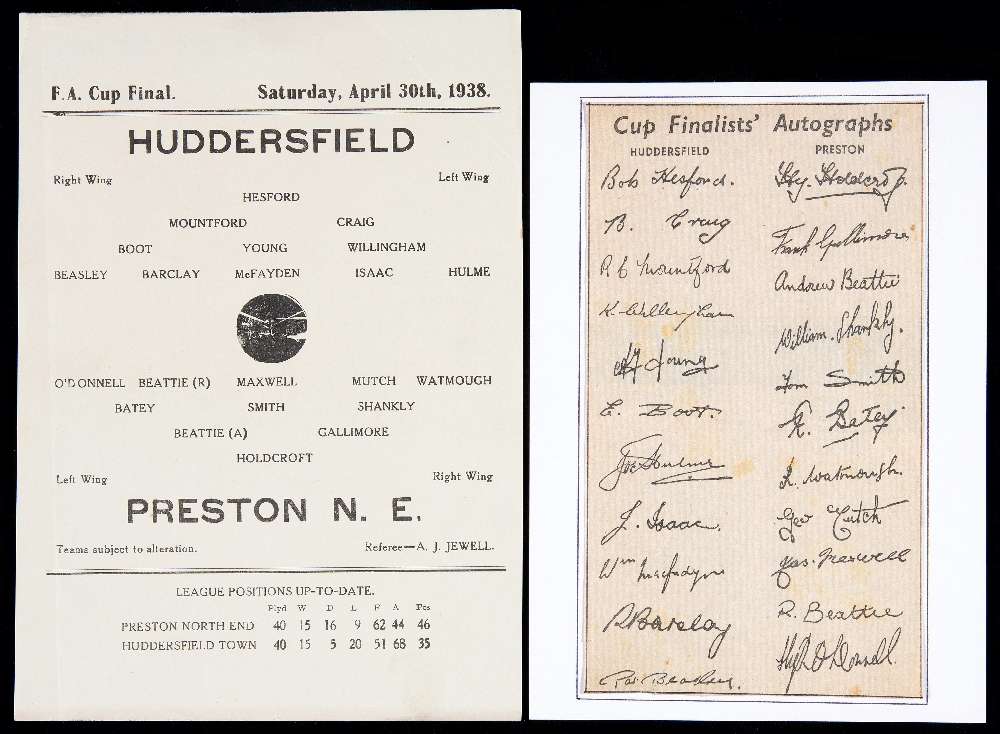 F.A. Cup Final. Saturday, April 30th, 1938.
HUDDERSFIELD
Right Wing Left Wing
HESFORD
MOUNTFORD CRAIG
BOOT YOUNG WILLINGHAM
BEASLEY BARCLAY McFAYDEN ISAAC HULME
O'DONNELL BEATTIE (R) MAXWELL MUTCH WATMOUGH
BATEY SMITH SHANKLY
BEATTIE (A) GALLIMORE
HOLDCROFT
Left Wing Right Wing
PRESTON N. E.
Teams subject to alteration. Referee—A. J. JEWELL.
LEAGUE POSITIONS UP-TO-DATE.
Plyd W D L F A Pts
PRESTON NORTH END 40 15 16 9 62 44 46
HUDDERSFIELD TOWN 40 15 5 20 51 68 35
Cup Finalists' Autographs
HUDDERSFIELD
Bob Hesford.
B. Craig
R E Mountford
K. Willingham
A Young
E. Boot.
Joe Hulme
J. Isaac.
Wm Macfadyen
R Barclay
Pat Beasley.
PRESTON
Hy. Holdcroft.
Frank Gallimore
Andrew Beattie
William. Shankly.
Tom Smith
R. Batey
R. Watmough.
Geo Mutch
Jas. Maxwell
R. Beattie
Hugh O'Donnell.